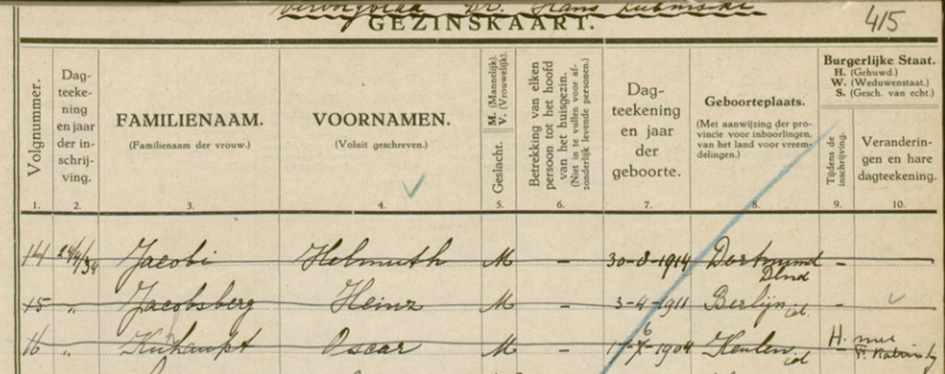 Dr. Hans
GEZINSKAART. 415
Volgnummer.
Dag-
teeke-
ning
en jaar
der in-
schrij-
ving.
FAMILIENAAM.
(Familienaam der vrouw.)
VOORNAMEN.
(Voluit geschreven.)
Geslacht. M. (Mannelijk). V. (Vrouwelijk).
Betrekking van elken
persoon tot het hoofd
van het huisgezin.
(Niet in te vullen voor af-
zonderlijk levende personen.)
Dag-
teekening
en jaar
der
geboorte.
Geboorteplaats.
(Met aanwijzing der pro-
vincie voor inboorlingen,
van het land voor vreem-
delingen.)
Burgerlijke Staat.
H. (Gehuwd.)
W. (Weduwenstaat.)
S. (Gesch. van echt.)
Tijdens de
inschrijving.
Veranderin-
gen en hare
dagteekening.
1. 2. 3. 4. 5. 6. 7. 8. 9. 10.
14 24/4/34 Jacobi Helmuth M - 30-8-1914 Dortmund -
Dlnd
15 " Jacobsberg Heinz M - 3-4-1911 Berlijn id. -
16 " Oscar M - 1904 Keulen id H. met